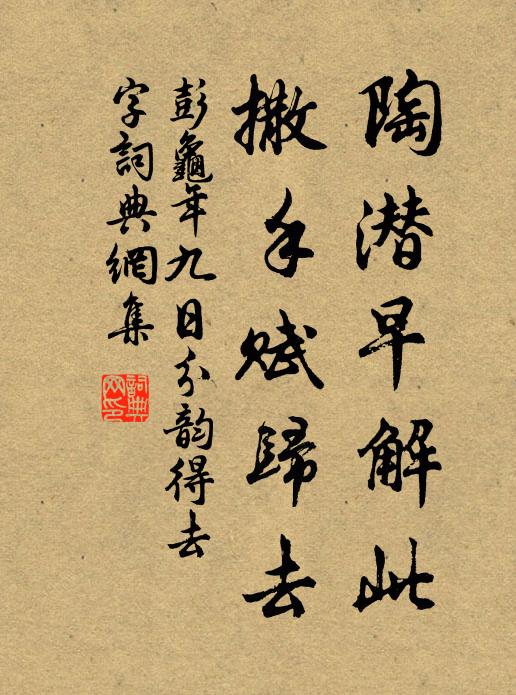 陶潜早解此
撒手赋歸去
彭龜年九日分韵得去
字詞典網集
詞典网印